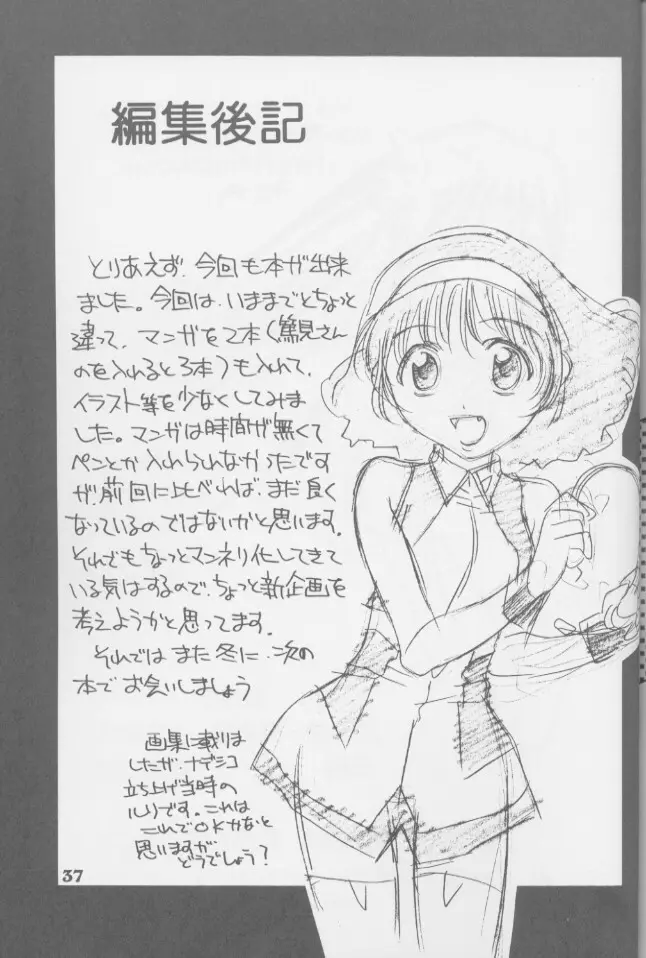 編集後記
とりあえず、今回も本が出来
ました。今回は、いままでとちょっと
違って、マンガを2本(鷲見さん
のを入れると3本)も入れて、
イラスト等を少なくしてみま
した。マンガは時間が無くて
ペンとか入れられなかったです
が、前回に比べれば、まだ良く
なっているのではないかと思います。
それでもちょっとマンネリ化してきて
いる気はするので、ちょっと新企画を
考えようかと思ってます。
それでは また 冬に、次の
本で お会いしましょう
画集に載りは
したが、ナデシコ
立ち上げ当時の
ルリです。これは
これでOKかなと
思いますが
どうでしょう?
37